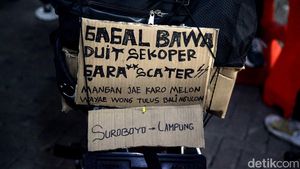 GAGAL BAWA
DUIT SEKOPER
GARA** SCATER⚡
MANGAN JAE KARO MELON
WAYAE WONG TULUS BALI NGULON
SUROBOYO - LAMPUNG
detikcom